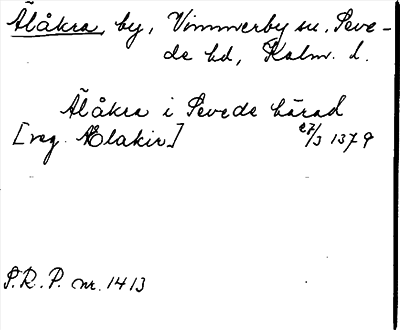 Älåkra, by, Vimmerby sn, Seve-
de hd, Kalm. l.
Älåkra i Sevede härad
[reg. Ælakir] 27/3 1379
S.R.P. nr. 1413